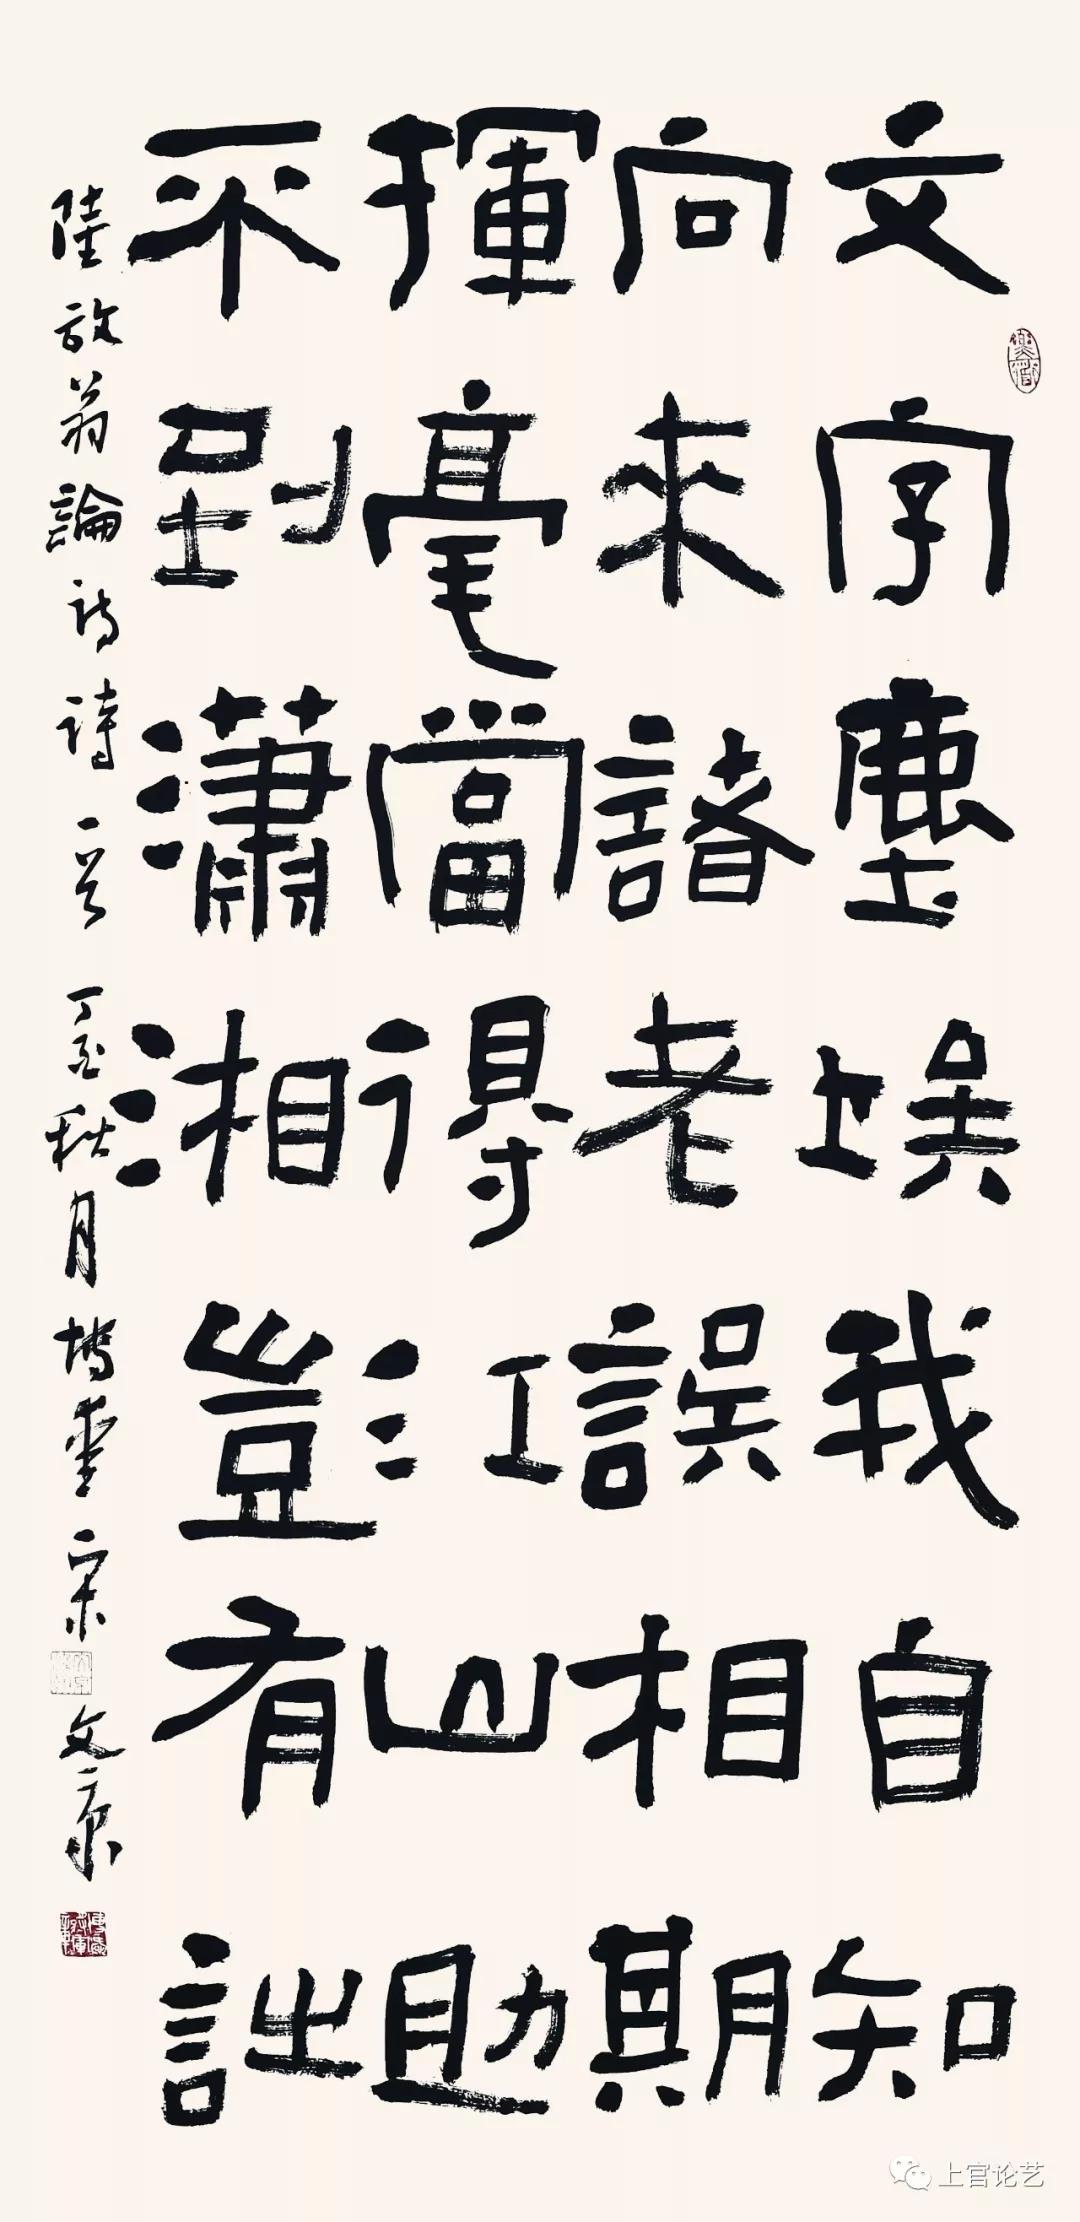 文字塵埃我自知
向來諸老誤相期
揮毫當得江山助
不到瀟湘豈有詩
陸放翁論詩詩一首 丁酉秋月 宋文京
上官论艺